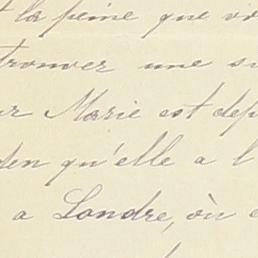 la peine que vo
trouver une s
Marie est dep
qu'elle a l
a Londre, où